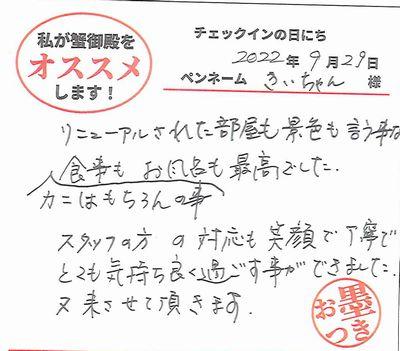 私が蟹御殿を
オススメ
します!
チェックインの日にち
2022年9月29日
ペンネーム きぃちゃん 様
リニューアルされた部屋も景色も言う事な
食事も お風呂も最高でした.
カニはもちろんの事
スタッフの方 の 対応も笑顔で丁寧で
とても気持ち良く過ごす事ができました.
又来させて頂きます.
お墨つき